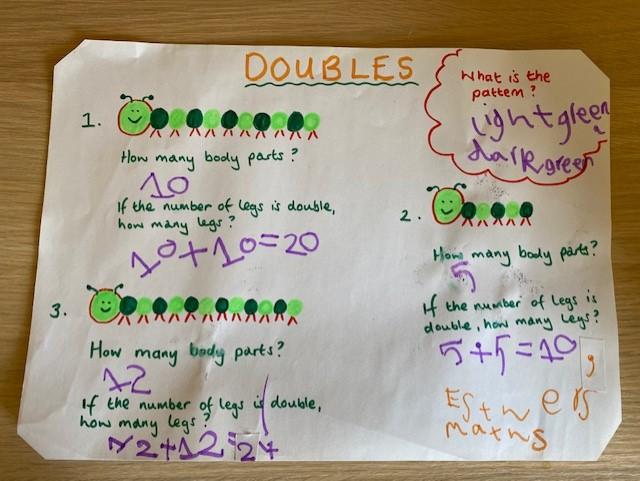 DOUBLES
What is the
pattern?
light green
dark green
1.
How many body parts?
10
If the number of legs is double,
how many legs?
10+10=20
2.
How many body parts?
5
If the number of legs is
double, how many legs?
5+5=10
3.
How many body parts?
12
If the number of legs is double,
how many legs?
12+12=24